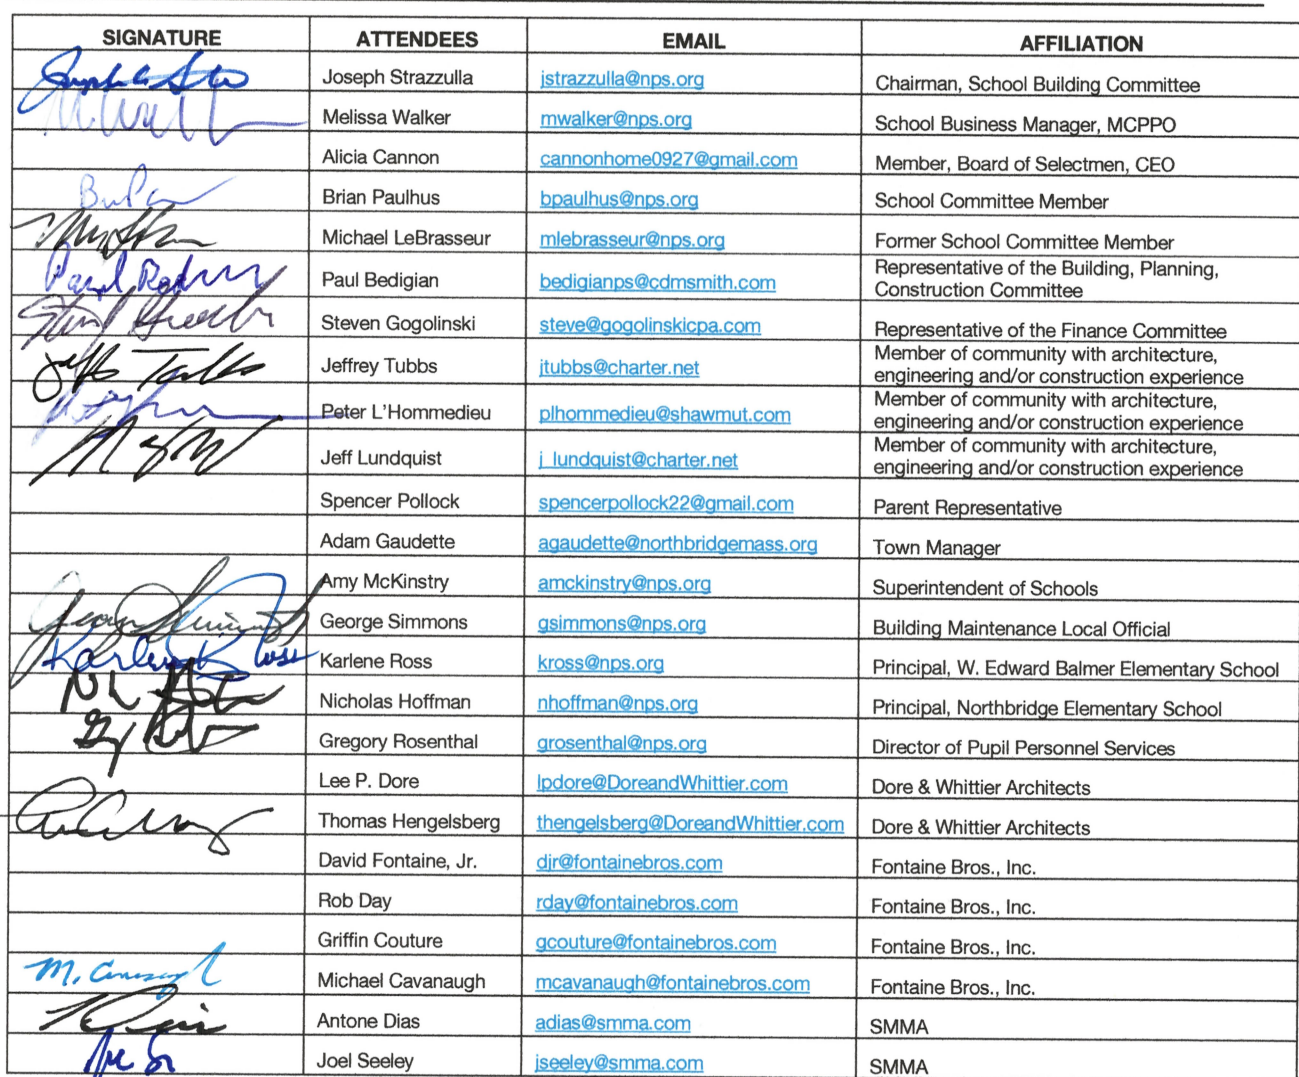 SIGNATURE ATTENDEES EMAIL AFFILIATION
Joseph Strazzulla jstrazzulla@nps.org Chairman, School Building Committee
Melissa Walker mwalker@nps.org School Business Manager, MCPPO
Alicia Cannon cannonhome0927@gmail.com Member, Board of Selectmen, CEO
Brian Paulhus bpaulhus@nps.org School Committee Member
Michael LeBrasseur mlebrasseur@nps.org Former School Committee Member
Paul Bedigian bedigianps@cdmsmith.com Representative of the Building, Planning,
Construction Committee
Steven Gogolinski steve@gogolinskicpa.com Representative of the Finance Committee
Jeffrey Tubbs jtubbs@charter.net Member of community with architecture,
engineering and/or construction experience
Peter L'Hommedieu plhommedieu@shawmut.com Member of community with architecture,
engineering and/or construction experience
Jeff Lundquist j_lundquist@charter.net Member of community with architecture,
engineering and/or construction experience
Spencer Pollock spencerpollock22@gmail.com Parent Representative
Adam Gaudette agaudette@northbridgemass.org Town Manager
Amy McKinstry amckinstry@nps.org Superintendent of Schools
George Simmons gsimmons@nps.org Building Maintenance Local Official
Karlene Ross Karlene Ross kross@nps.org Principal, W. Edward Balmer Elementary School
Nicholas Hoffman nhoffman@nps.org Principal, Northbridge Elementary School
Gregory Rosenthal grosenthal@nps.org Director of Pupil Personnel Services
Lee P. Dore lpdore@DoreandWhittier.com Dore & Whittier Architects
Thomas Hengelsberg thengelsberg@DoreandWhittier.com Dore & Whittier Architects
David Fontaine, Jr. djr@fontainebros.com Fontaine Bros., Inc.
Rob Day rday@fontainebros.com Fontaine Bros., Inc.
Griffin Couture gcouture@fontainebros.com Fontaine Bros., Inc.
Michael Cavanaugh mcavanaugh@fontainebros.com Fontaine Bros., Inc.
Antone Dias adias@smma.com SMMA
Joel Seeley jseeley@smma.com SMMA